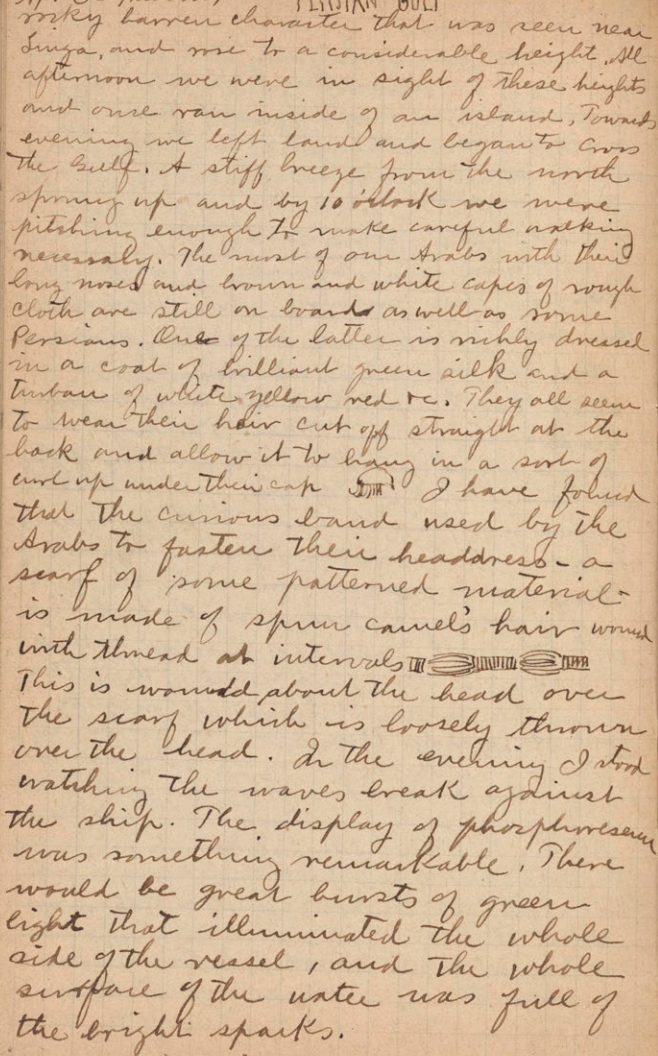 PERSIAN GULF
rocky barren character that was seen near
Linga, and rose to a considerable height. All
afternoon we were in sight of these heights
and once ran inside of an island. Towards
evening we left land and began to cross
the Gulf. A stiff breeze from the north
sprung up and by 10 o'clock we were
pitching enough to make careful walking
necessary. The most of our Arabs with their
long noses and brown and white capes of rough
cloth are still on board as well as some
Persians. One of the latter is richly dressed
in a coat of brilliant green silk and a
turban of white, yellow red &c. They all seem
to wear their hair cut off straight at the
back and allow it to hang in a sort of
curl up under their cap I have found
that the curious band used by the
Arabs to fasten their headdress - a
scarf of some patterned material -
is made of spun camel's hair wound
with thread at intervals
This is wound about the head over
the scarf which is loosely thrown
over the head. In the evening I stood
watching the waves break against
the ship. The display of phosphoresence
was something remarkable. There
would be great bursts of green
light that illuminated the whole
side of the vessel, and the whole
surface of the water was full of
the bright sparks.